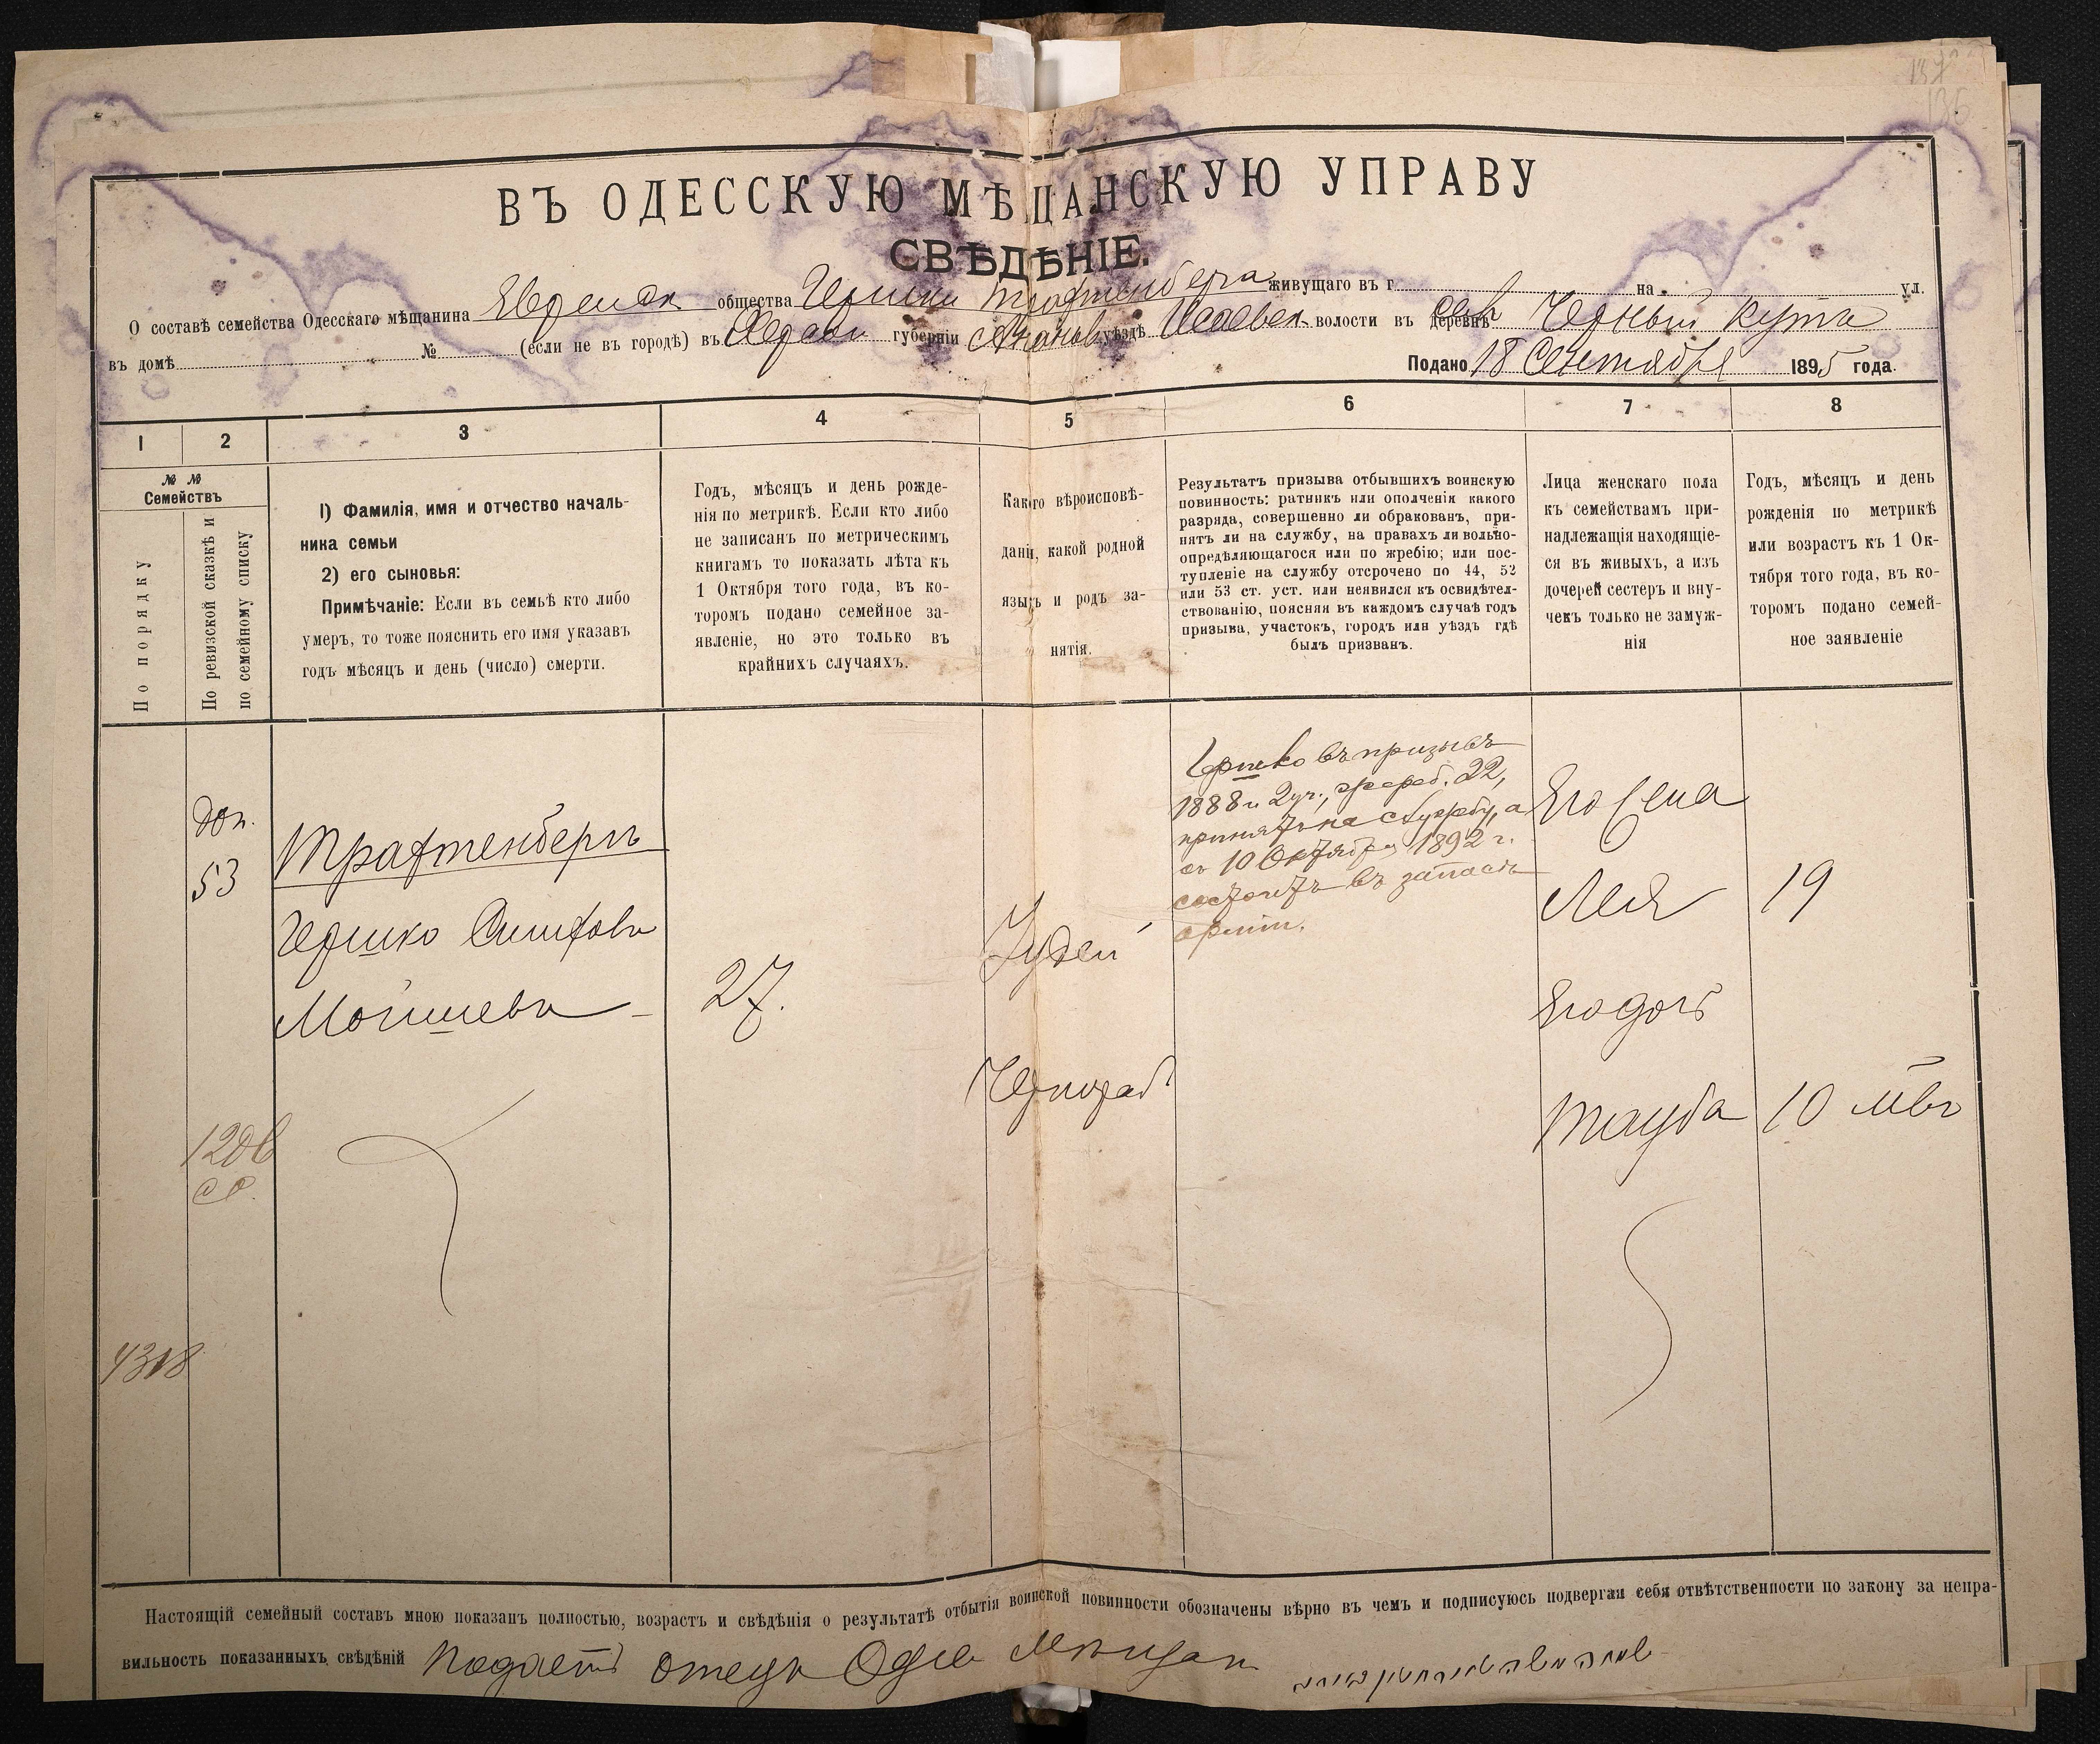 137
136
ВЪ ОДЕССКУЮ МѢЩАНСКУЮ УПРАВУ
СВѢДѢНІЕ.
О составѣ семейства Одесскаго мѣщанина Еврейск общества Гершки Трахтенберга живущаго въ г. на ул.
въ домѣ № (если не въ городѣ) въ Херсон губерніи Ананьев уѣздѣ Исаевск волости въ деревнѣ Черный Кутъ
Подано 18 Сентября 1895 года.
1 2 3 4 5 6 7 8
№ №
Семействъ
По порядку
По ревизской сказкѣ и
по семейному списку
1) Фамилія, имя и отчество началь-
ника семьи
2) его сыновья:
Примѣчаніе: Если въ семьѣ кто либо
умеръ, то тоже пояснить его имя указавъ
годъ мѣсяцъ и день (число) смерти.
Годъ, мѣсяцъ и день рожде-
нія по метрикѣ. Если кто либо
не записанъ по метрическимъ
книгамъ то показать лѣта къ
1 Октября того года, въ ко-
торомъ подано семейное за-
явленіе, но это только въ
крайнихъ случаяхъ.
Какого вѣроисповѣ-
данія, какой родной
языкъ и родъ за-
нятія.
Результатъ призыва отбывшихъ воинскую
повинность: ратникъ или ополченія какого
разряда, совершенно ли обракованъ, при-
нятъ ли на службу, на правахъ ли вольно-
опредѣляющагося или по жребію; или пос-
тупленіе на службу отсрочено по 44, 52
или 53 ст. уст. или неявился къ освидѣтел-
ствованію, поясняя въ каждомъ случаѣ годъ
призыва, участокъ, городъ или уѣздъ гдѣ
былъ призванъ.
Лица женскаго пола
къ семействамъ при-
надлежащія находящіе-
ся въ живыхъ, а изъ
дочерей сестеръ и вну-
чекъ только не замуж-
нія
Годъ, мѣсяцъ и день
рожденія по метрикѣ
или возрастъ къ 1 Ок-
тября того года, въ ко-
торомъ подано семей-
ное заявленіе
доп.
53
Трахтенбергъ
Гершко
Мойшевъ
27.
Іудей
Чернораб
Гершко въ призывъ
1888 г. 2 уч., жереб. 22,
принятъ на службу, а
съ 10 Октября 1892 г.
состоитъ въ запасѣ
арміи.
Его жена
Лея 19
Его дочь
Тауба 10 мѣс
120б
4318
Настоящій семейный составъ мною показанъ полностью, возрастъ и свѣдѣнія о результатѣ отбытія воинской повинности обозначены вѣрно въ чемъ и подписуюсь подвергая себя отвѣтственности по закону за непра-
вильность показанныхъ свѣдѣній Подаетъ отецъ Одес Мѣщан